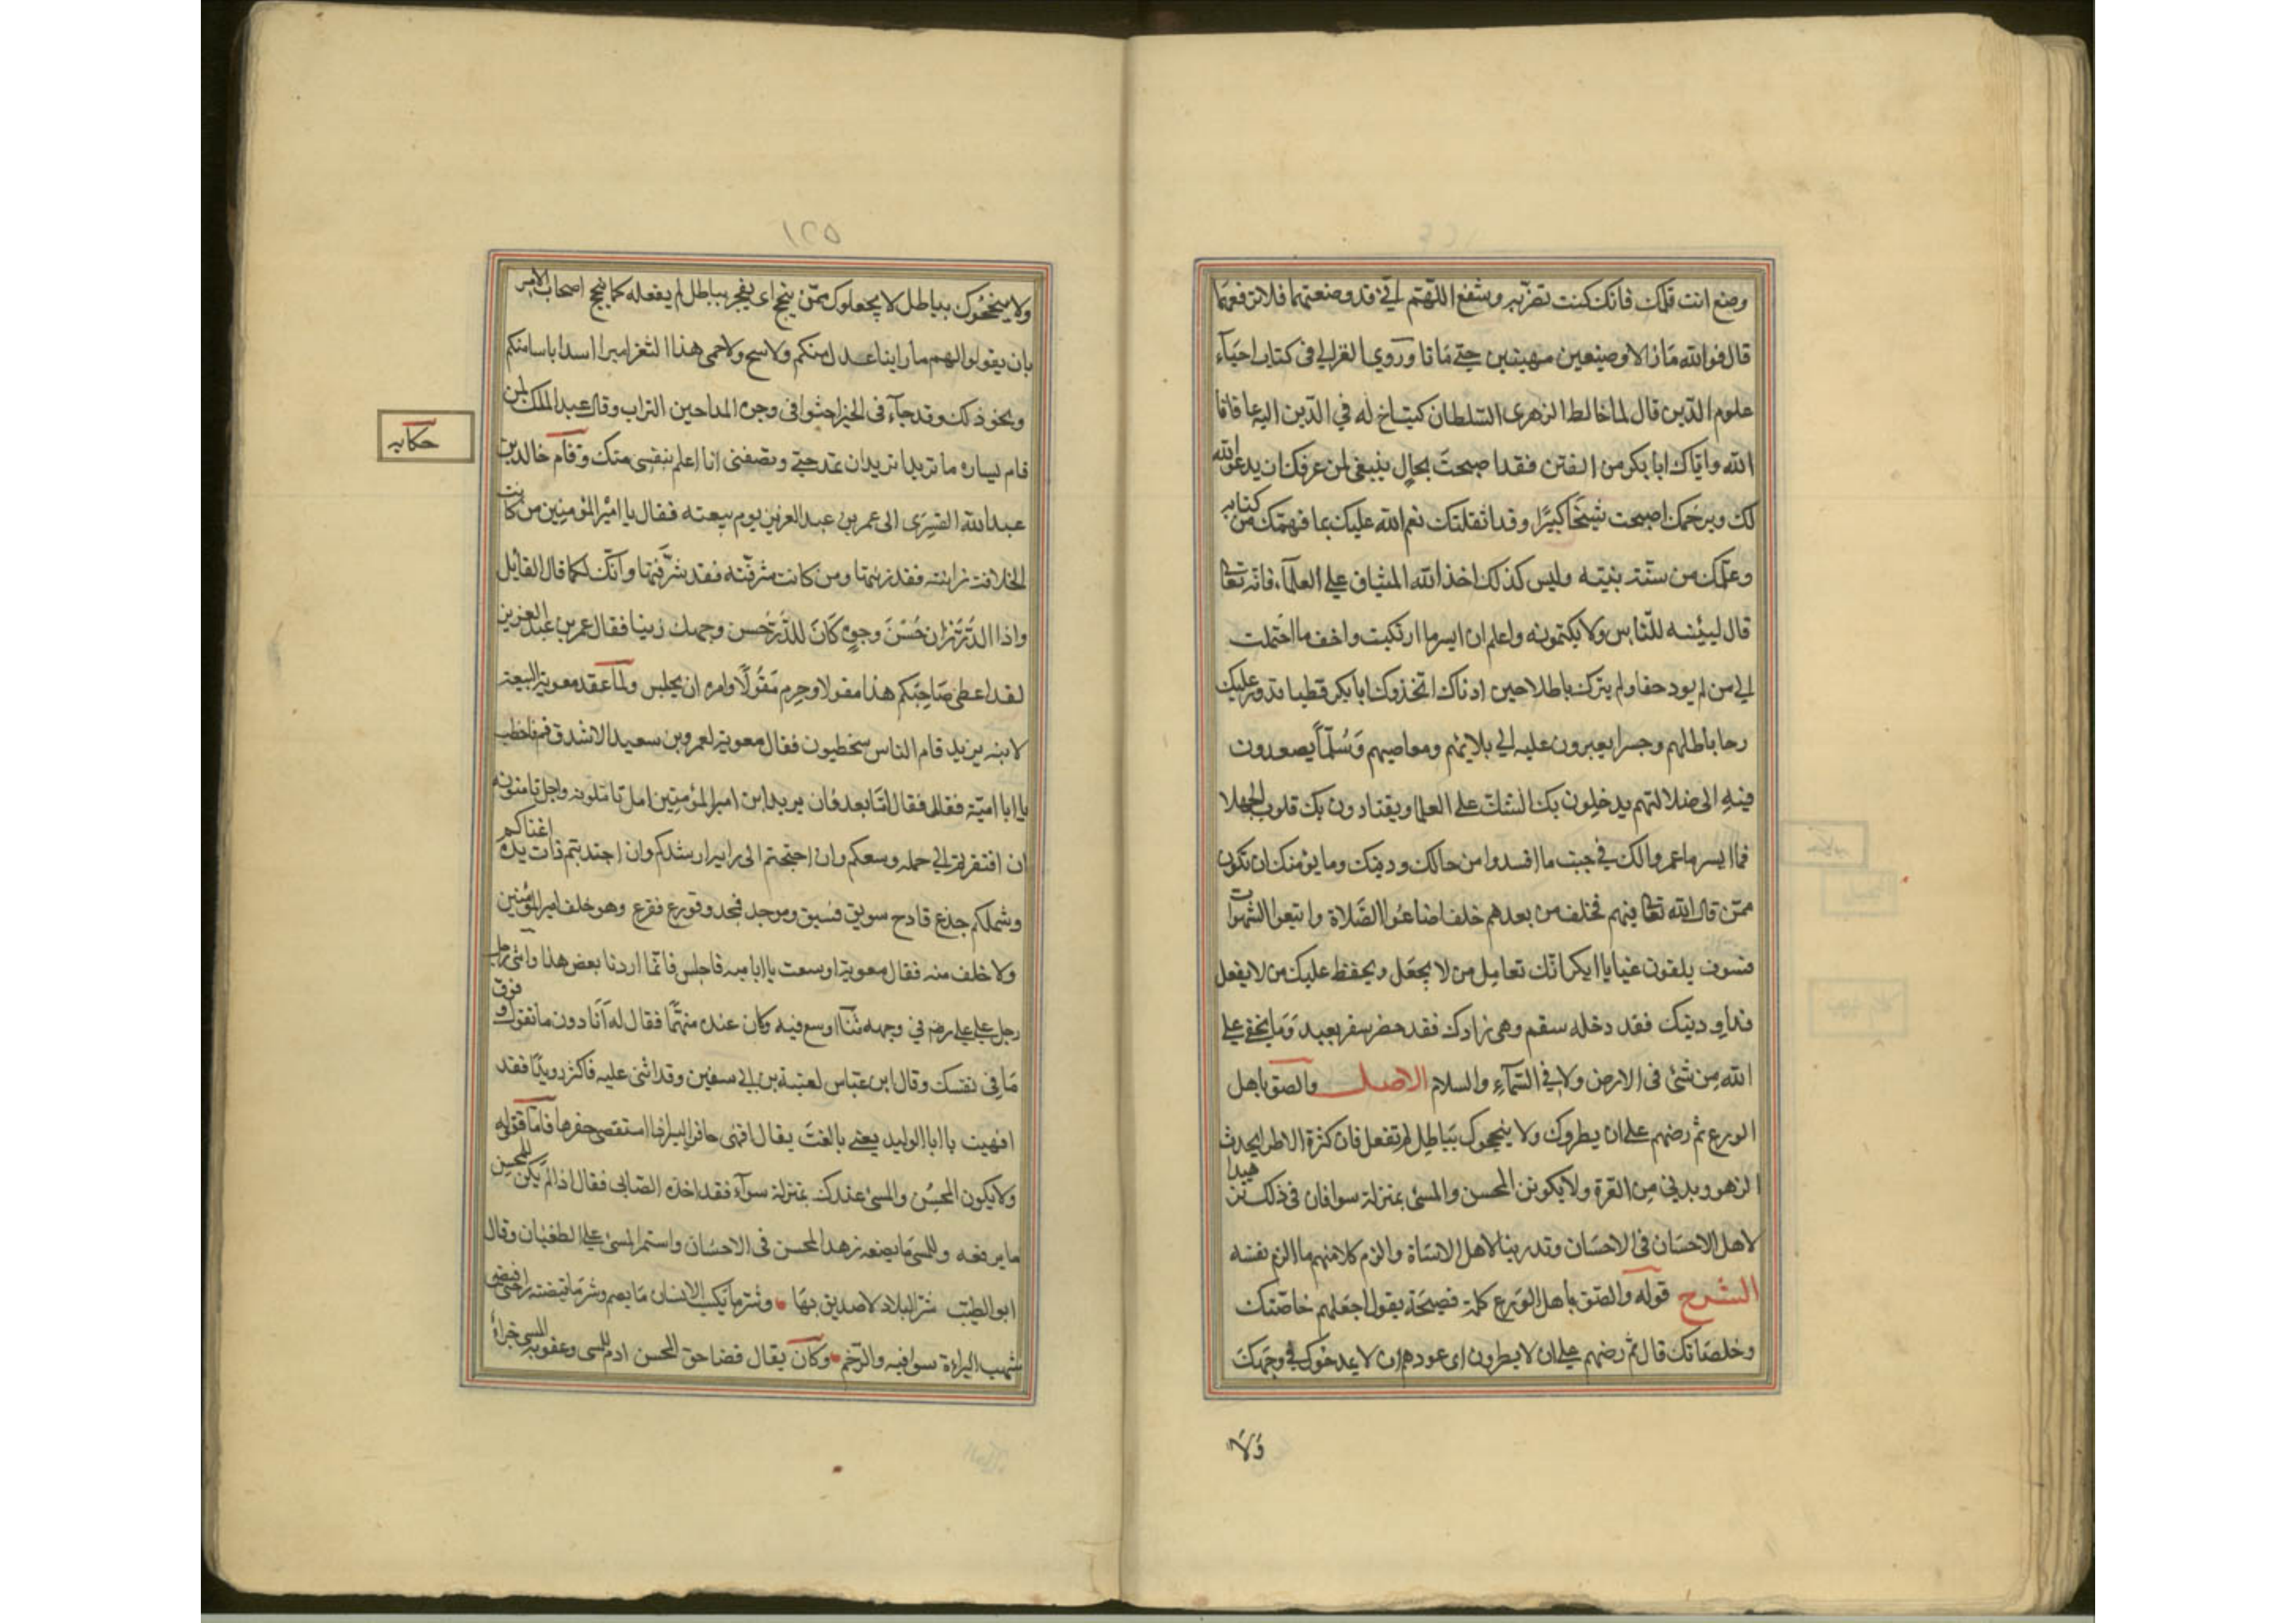 وضع انت قلمك فانك كنت تضرّ به وتنفع اللّهمّ اني قد وضعتهما فلا ترفعهما
قال فوالله مازالا وضيعين مهينين حتى ماتا وروي الغزالي في كتاب احيآء
علوم الدّين قال لما خالط الزهرى السّلطان كتب اخ له في الدّين اليه عافانا
الله واياك ابا بكر من الفتن فقد اصبحت بحال ينبغي لمن عرفك ان يدعو الله
لك ويرحمك اصبحت شيخا كبيرًا وقد اثقلتك نعم الله عليك بما فهمك من كتابه
وعلّمك من سنّة نبيّه وليس كذلك اخذ الله الميثاق على العلمآء فانه تعالى
قال ليبيّننه للنّاس ولا يكتمونه واعلم ان ايسر ما ارتكبت واخف ما احتملت
الي من لم يود حقا ولم يترك باطلا حين ادناك اتخذوك ابا بكر قطبا تدور عليك
رحا باطلهم وجسرا يعبرون عليه الي بلائهم ومعاصيهم وسُلّمًا يصعدون
فيه الى ضلالتهم يدخلون بك الشك على العلما ويقتادون بك قلوب الجهلا
فما ايسر ما عمروا لك في جنب ما افسدوا من حالك ودينك وما يؤمنك ان تكون
ممّن قال الله تعالى فيهم فخلف من بعدهم خلف اضاعوا الصّلاة واتبعوا الشهوات
فسوف يلقون غيا يا ابا بكر انّك تعامل من لا يجهل ويحفظ عليك من لا يغفل
فداو دينك فقد دخله سقم وهي زادك فقد حضر سفر بعيد وما يخفى على
الله من شئ في الارض ولا في السّمآء والسلام الاصل والصق باهل
الورع ثم رضهم على ان لا يطروك ولا يبجحوك بباطل لم تفعله فان كثرة الاطرا تحدث
الزهو وتدني من الغرة ولا يكونن المحسن والمسئ بمنزلة سوا فان في ذلك تزهيدا
لاهل الاحسان في الاحسان وتدريبا لاهل الاساة والزم كلا منهم ما الزم نفسه
الشرح قوله والصق باهل الورع كلمة فصيحة يقول اجعلهم خاصّتك
وخلصانك قال ثم رضهم على ان لا يطروك اى عودهم ان لا يمدحوك في وجهك
ولا
١٢٥
ولا يبجحوك بباطل لا يجعلوك ممّن يبجح اى يفخر بباطل لم يفعله كما يبجح اصحاب الامير
بان يقولوا لهم ما راينا اعدل منكم ولا اسمح ولا حمى هذا الثغر امير اشد باسا منكم
ونحو ذلك وقد جآء في الخبر احثوا في وجوه المداحين التراب وقال عبد الملك لمن
قام يساره ما تريد اتريد ان تمدحني وتصفني انا اعلم بنفسي منك وقام خالد بن
حكايه
عبد الله القسرى الى عمر بن عبد العزيز يوم بيعته فقال يا امير المؤمنين من كانت
الخلافة زانته فقد زنتها ومن كانت شرفته فقد شرّفتها وانّك لكما قال القائل
واذا الدّر زان حُسْنَ وجوهٍ كَانَ للدّر حسن وجهك زينا فقال عمر بن عبد العزيز
لقد اعطى صاحبكم هذا مقولا وحرم معقولا وامره ان يجلس ولما عقد معوية البيعة
لابنه يزيد قام الناس يخطبون فقال معوية لعمرو بن سعيد الاشدق قم فاخطب
يا ابا امية فقام فقال امّا بعد فان يزيد ابن امير المؤمنين امل تاملونه واجل تامنونه
ان افتقرتم الي حلمه وسعكم وان احتجتم الى رايه ارشدكم وان اجتديتم ذات يده اغناكم
وشملكم جذع قارح سوبق فسبق وموجد فمجد وقورع فقرع وهو خلف امير المؤمنين
ولا خلف منه فقال معوية اوسعت يا ابا اميه فاجلس فانما اردنا بعض هذا واثنى رجل
رجل على علي رضه في وجهه ثنآ اوسع فيه وكان عنده متهمًا فقال له انا دون ما تقول وفوق
ما في نفسك وقال ابن عباس لعتبة بن ابي سفين وقد اثنى عليه فاكثر رويدًا فقد
امهيت يا ابا الوليد يعني بالغت يقال امهى حافر البير اذا استقصى حفرها فامّا قوله
ولا يكون المحسن والمسئ عندك بمنزلة سوآء فقد اخذه الصابى فقال اذا لم يكن للمحسن
ما يرفعه وللمسئ ما يضعه زهد المحسن في الاحسان واستمر المسئ على الطغيان وقال
ابو الطيّب شر البلاد لا صديق بها وشر ما يكسب الانسان ما يصم وشر ما قبضته راحتى قبض
شهب البزاة سوا فيه والرّخم وكان يقال قضا حق المحسن ادب للمسئ وعقوبة المسئ جزاء